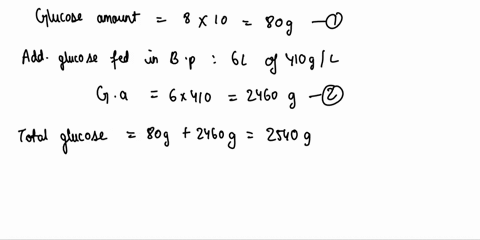 Glucose amount = 8 × 10 = 80g —①
Add. glucose fed in B.p : 6L of 410g/L
G.a = 6×410 = 2460 g —②
Total glucose = 80g + 2460g = 2540 g